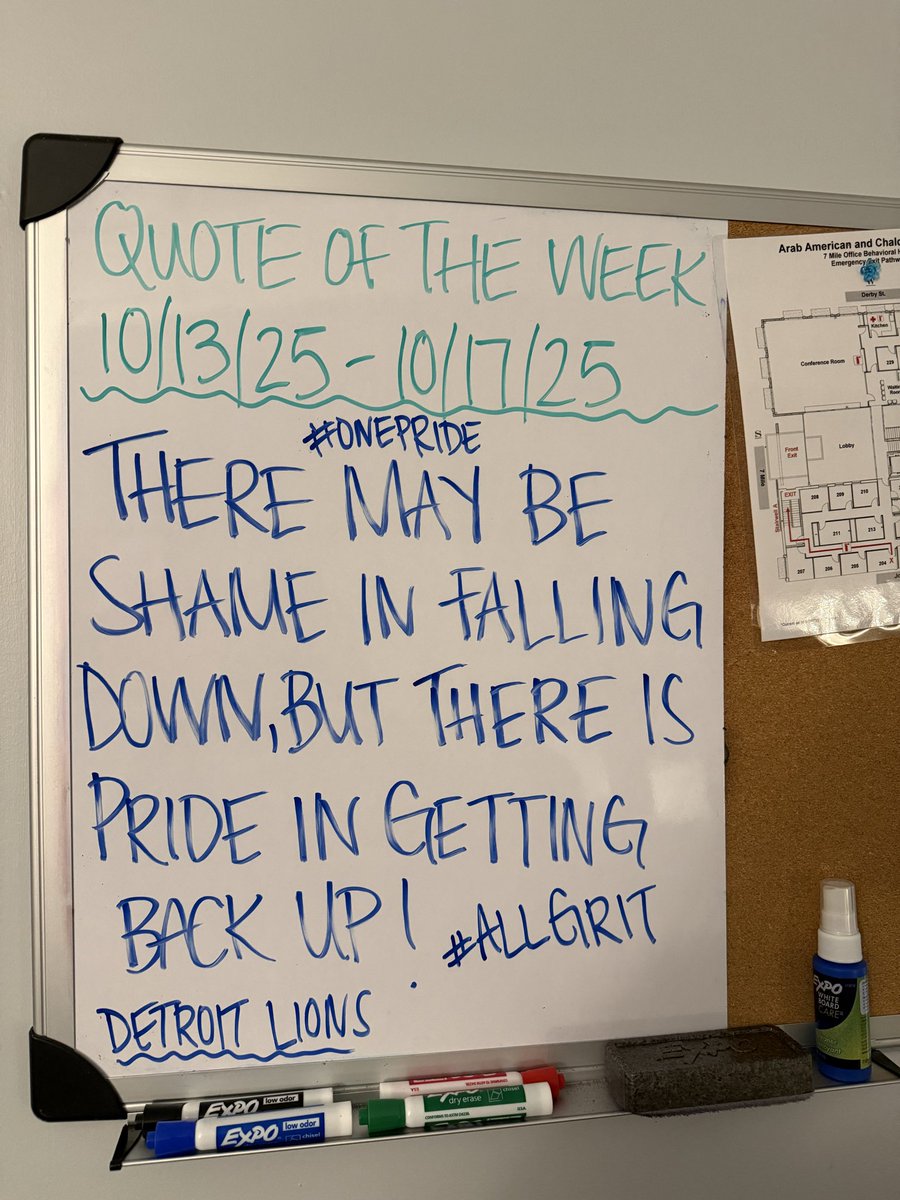 QUOTE OF THE WEEK
10/13/25 - 10/17/25
#ONEPRIDE
THERE MAY BE
SHAME IN FALLING
DOWN, BUT THERE IS
PRIDE IN GETTING
BACK UP!
#ALLGRIT
DETROIT LIONS
Arab American and Chald
7 Mile Office Behavioral H
Emergency Exit Pathw
Derby St.
Kitchen
Conference Room
229
Lobby
Front
Exit
7 Mile
EXIT
Stairwell A
208
209
210
211
213
207
206
205
204
X
EXPO
WHITE
BOARD
CARE
EXPO
EXPO low odor
EXPO low odor chisel
dry erase chisel